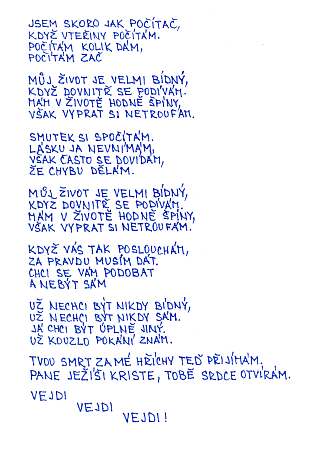 JSEM SKORO JAK POČÍTAČ,
KDYŽ VTEŘINY POČÍTÁM.
POČÍTÁM KOLIK DÁM,
POČÍTÁM ZAČ
MŮJ ŽIVOT JE VELMI BÍDNÝ,
KDYŽ DOVNITŘ SE PODÍVÁM.
MÁM V ŽIVOTĚ HODNĚ ŠPÍNY,
VŠAK VYPRAT SI NETROUFÁM.
SMUTEK SI SPOČÍTÁM.
LÁSKU JÁ NEVNÍMÁM,
VŠAK ČASTO SE DOVÍDÁM,
ŽE CHYBU DĚLÁM.
MŮJ ŽIVOT JE VELMI BÍDNÝ,
KDYŽ DOVNITŘ SE PODÍVÁM.
MÁM V ŽIVOTĚ HODNĚ ŠPÍNY,
VŠAK VYPRAT SI NETROUFÁM.
KDYŽ VÁS TAK POSLOUCHÁM,
ZA PRAVDU MUSÍM DÁT.
CHCI SE VÁM PODOBAT
A NEBÝT SÁM
UŽ NECHCI BÝT NIKDY BÍDNÝ,
UŽ NECHCI BÝT NIKDY SÁM.
JÁ CHCI BÝT ÚPLNĚ JINÝ.
UŽ KOUZLO POKÁNÍ ZNÁM.
TVOU SMRT ZA MÉ HŘÍCHY TEĎ PŘIJÍMÁM.
PANE JEŽÍŠI KRISTE, TOBĚ SRDCE OTVÍRÁM.
VEJDI
VEJDI
VEJDI!